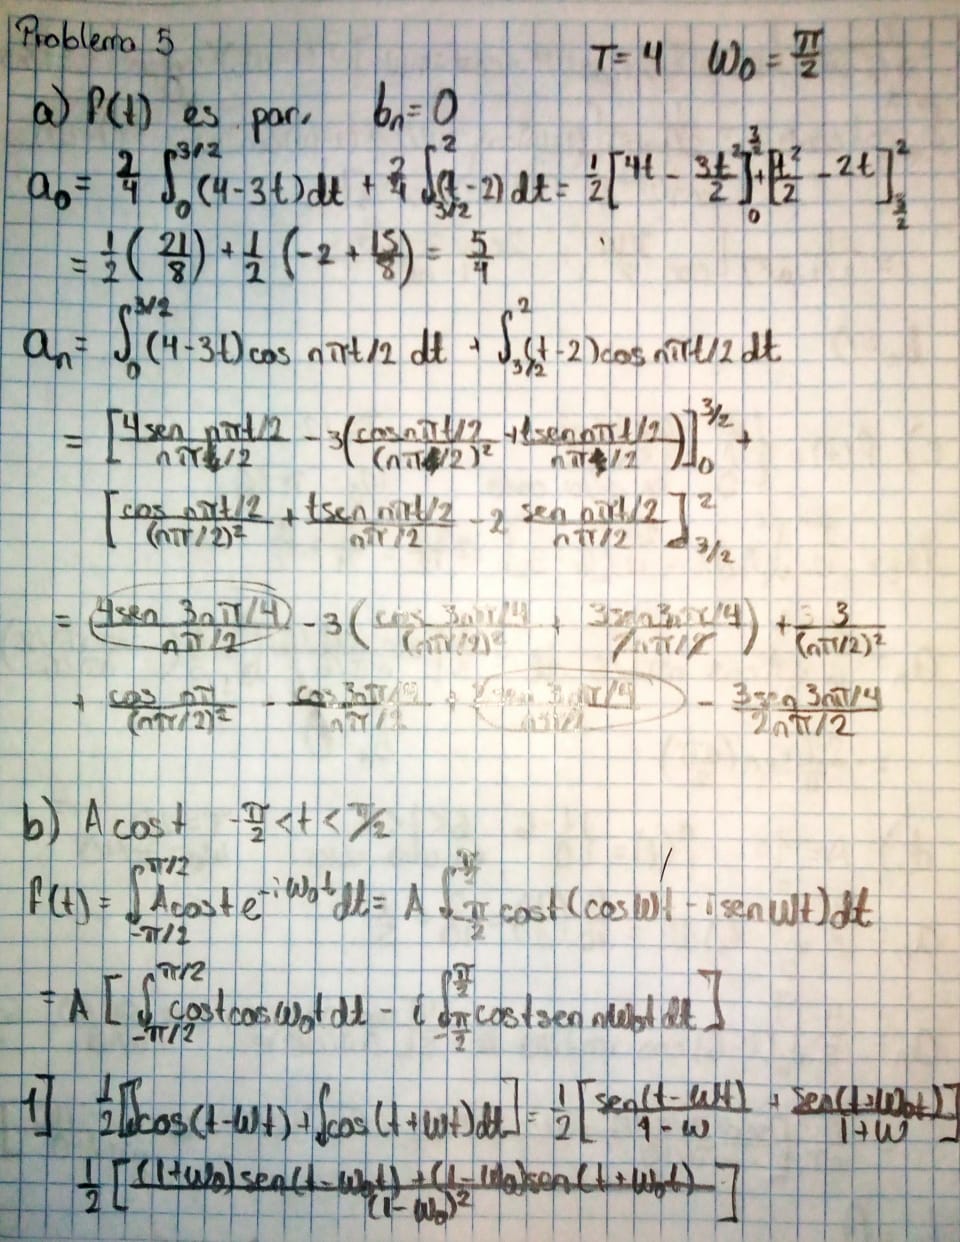 Problema 5
T=4 ω₀=π/2
a) f(t) es par. bₙ=0
a₀ = 2/4 ∫₀^{3/2} (4-3t)dt + 2/4 ∫_{3/2}^{2} (t-2)dt = 1/2 [4t - 3t²/2]₀^{3/2} + [t²/2 - 2t]_{3/2}^{2}
= 1/2 (21/8) + 1/2 (-2 + 15/8) = 5/4
aₙ = ∫₀^{3/2} (4-3t)cos nπt/2 dt + ∫_{3/2}^{2} (t-2)cos nπt/2 dt
= [4sen nπt/2 / nπ/2 - 3(cos nπt/2 / (nπ/2)² + t sen nπt/2 / nπ/2)]₀^{3/2} +
[cos nπt/2 / (nπ/2)² + t sen nπt/2 / nπ/2 - 2 sen nπt/2 / nπ/2]_{3/2}^{2}
= 4sen 3nπ/4 / nπ/2 - 3(cos 3nπ/4 / (nπ/2)² + 3sen 3nπ/4 / 2nπ/2) + 3 / (nπ/2)²
+ cos nπ / (nπ/2)² - cos 3nπ/4 / nπ/2 + sen 3nπ/4 / nπ/2 - 3sen 3nπ/4 / 2nπ/2
b) A cos t -π/2 < t < π/2
f(t) = ∫_{-π/2}^{π/2} A cos t e^{-iω₀t} dt = A ∫_{-π/2}^{π/2} cos t (cos ωt - i sen ωt) dt
= A [∫_{-π/2}^{π/2} cos t cos ω₀t dt - i ∫_{-π/2}^{π/2} cos t sen nω₀t dt]
1] 1/2 [∫cos(t-ωt) + ∫cos(t+ωt)dt] = 1/2 [sen(t-ωt) / 1-ω + sen(t+ω₀t) / 1+ω]
1/2 [(1+ω₀)sen(t-ω₀t) + (1-ω₀)sen(t+ω₀t) / (1-ω₀)²]